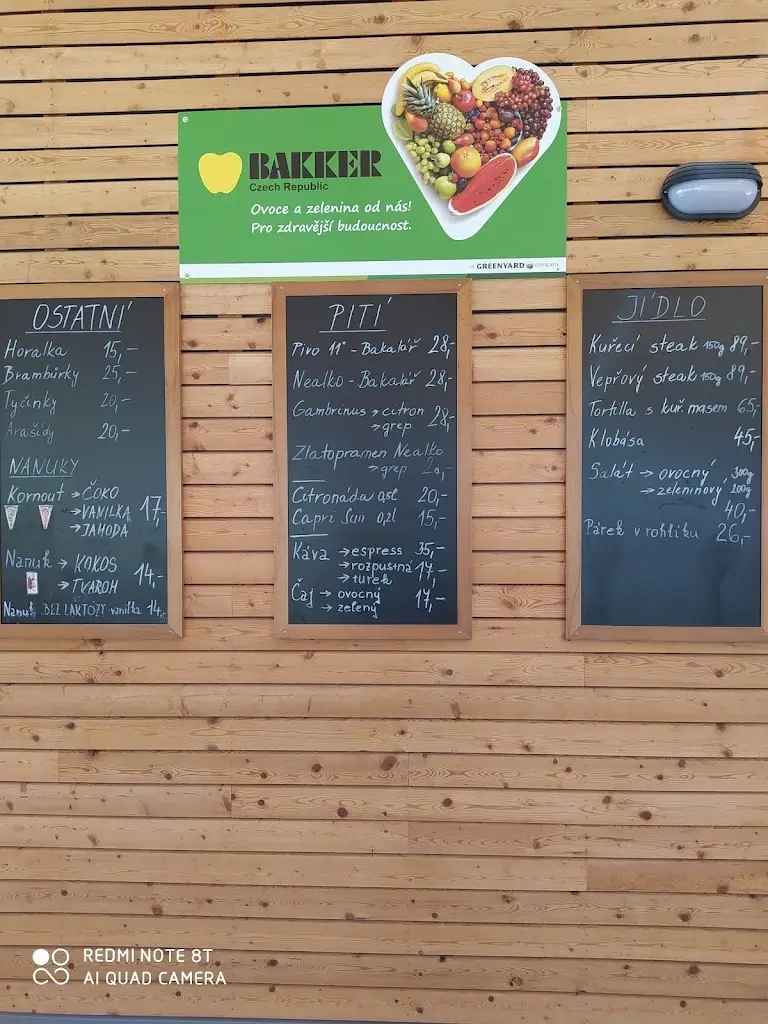 BAKKER
Czech Republic
Ovoce a zelenina od nás!
Pro zdravější budoucnost.
a GREENYARD company
OSTATNÍ
Horalka 15,-
Brambůrky 25,-
Tyčinky 20,-
Arašídy 20,-
NANUKY
Kornout → ČOKO
→ VANILKA 17,-
→ JAHODA
Nanuk → KOKOS
→ TVAROH 14,-
Nanuk BEZ LAKTÓZY - vanilka 14,-
PITÍ
Pivo 11° - Bakalář 28,-
Nealko - Bakalář 28,-
Gambrinus → citron
→ grep 28,-
Zlatopramen Nealko
→ grep 20,-
Citronáda 0,5l 20,-
Capri Sun 0,2l 15,-
Káva → espress 35,-
→ rozpustná 17,-
→ turek
Čaj → ovocný
→ zelený 17,-
JÍDLO
Kuřecí steak 150g 89,-
Vepřový steak 150g 89,-
Tortilla s kuř. masem 65,-
Klobása 45,-
Salát → ovocný 300g
→ zeleninový 200g
40,-
Párek v rohlíku 26,-
REDMI NOTE 8T
AI QUAD CAMERA